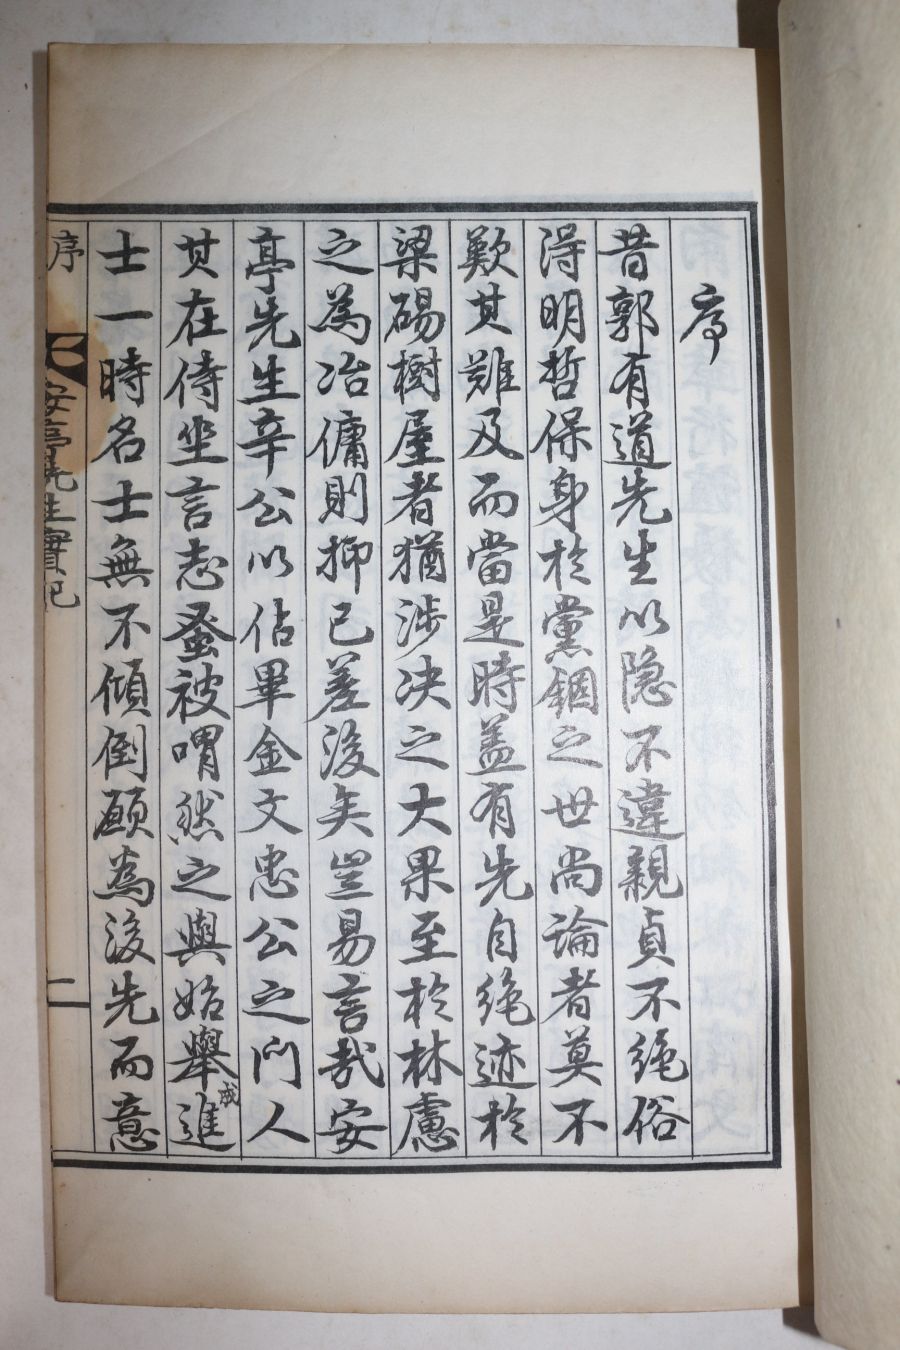 序
昔郭有道先生以隐不違親貞不絕俗
淂明哲保身於黨錮之世尚論者莫不
歎其难及而當是時盖有先自絕迹於
梁碭樹屋者猶涉决之大果至於林慮
之為冶傭則抑已差後矣豈易言哉安
亭先生辛公以佔畢金文忠公之门人
其在侍坐言志蚤被喟然之與始舉成進
士一時名士無不傾倒願為後先而意
序
安亭先生實記
二